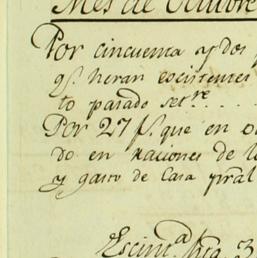 Mes de Octubre
Por cincuenta y dos
qe. heran existentes
to pasado sere. . . . .
Por 27 f. que en
do en raciones de
y gasto de Casa pral